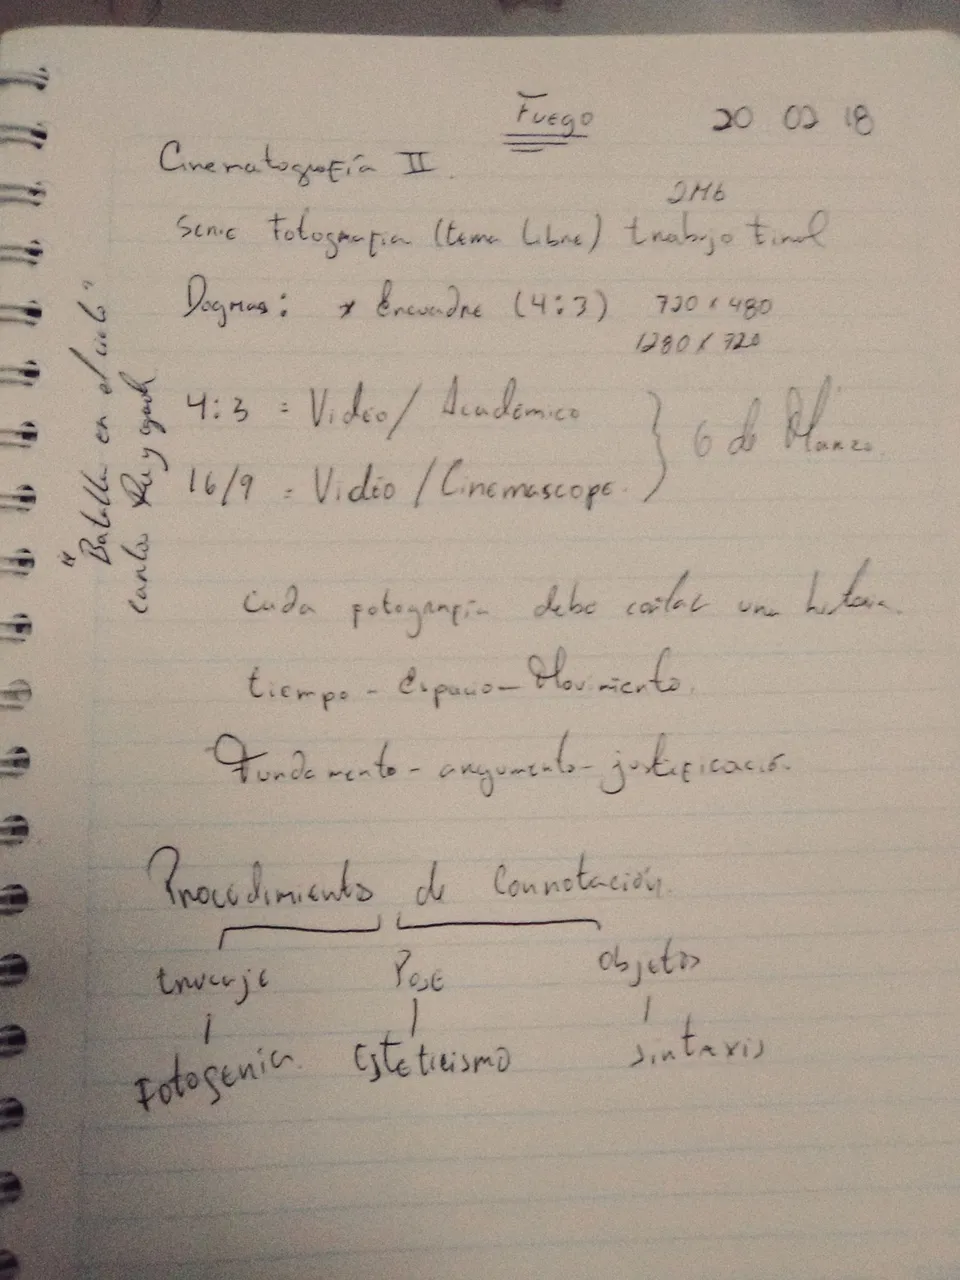 Fuego 20 02 18
Cinematografía II.
2Mb
Serie Fotografia (tema Libre) trabajo Final
Dogmas: * Encuadre (4:3) 720 x 480
1280 x 720
4:3 = Video/ Académico
16/9 = Video /Cinemascope.
} 6 de Marzo.
"Batalla en el cielo"
Carlos Reygada
Cada fotografía debe contar una historia.
tiempo - Espacio - Movimiento.
Fundamento - argumento - justificación.
Procedimiento de Connotación.
trucaje Pose Objetos
Fotogenia. Esteticismo Sintaxis